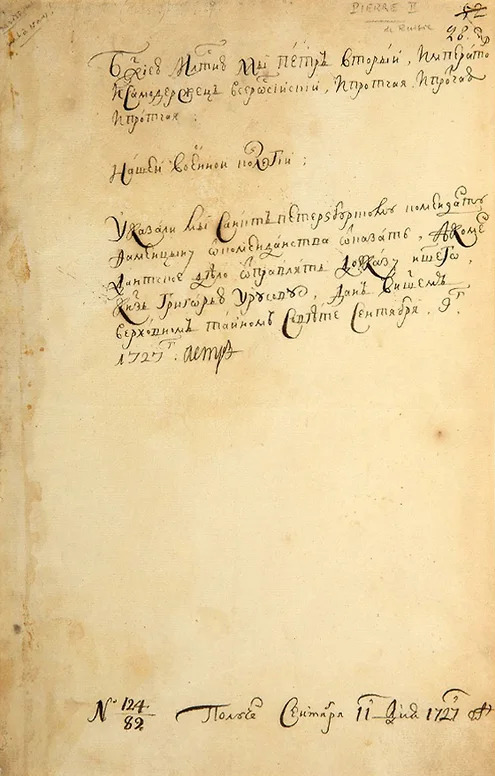 PIERRE II
de Russie
52
28.
Бжїею Млтию Мы ПЕТРЪ Вторый, Императо
ИСамодержецъ всеросїискїй, Ипротчая, Ипротчая
Ипротчая:
Нашей военной колегїи:
Указали мы Санктъпетербургскому коменданту
Фаменцыну ѿ комендантства ѿказать, А коме
дантское дѣло ѿправлять До указу нашего,
Князь Григорью Урусову, Данъ внашемъ
верховномъ тайномъ Совѣте Сентября. 9г.
1727г. Петръ
№ 124
82
Получе Сентября 11 Дня 1727